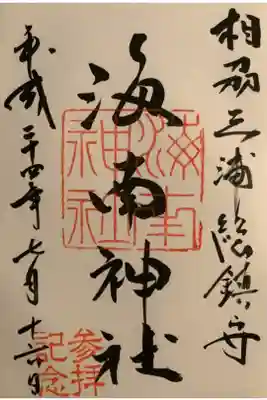 相州三浦総鎮守
海南神社
海南神社
平成二十四年七月十六日
参拝記念